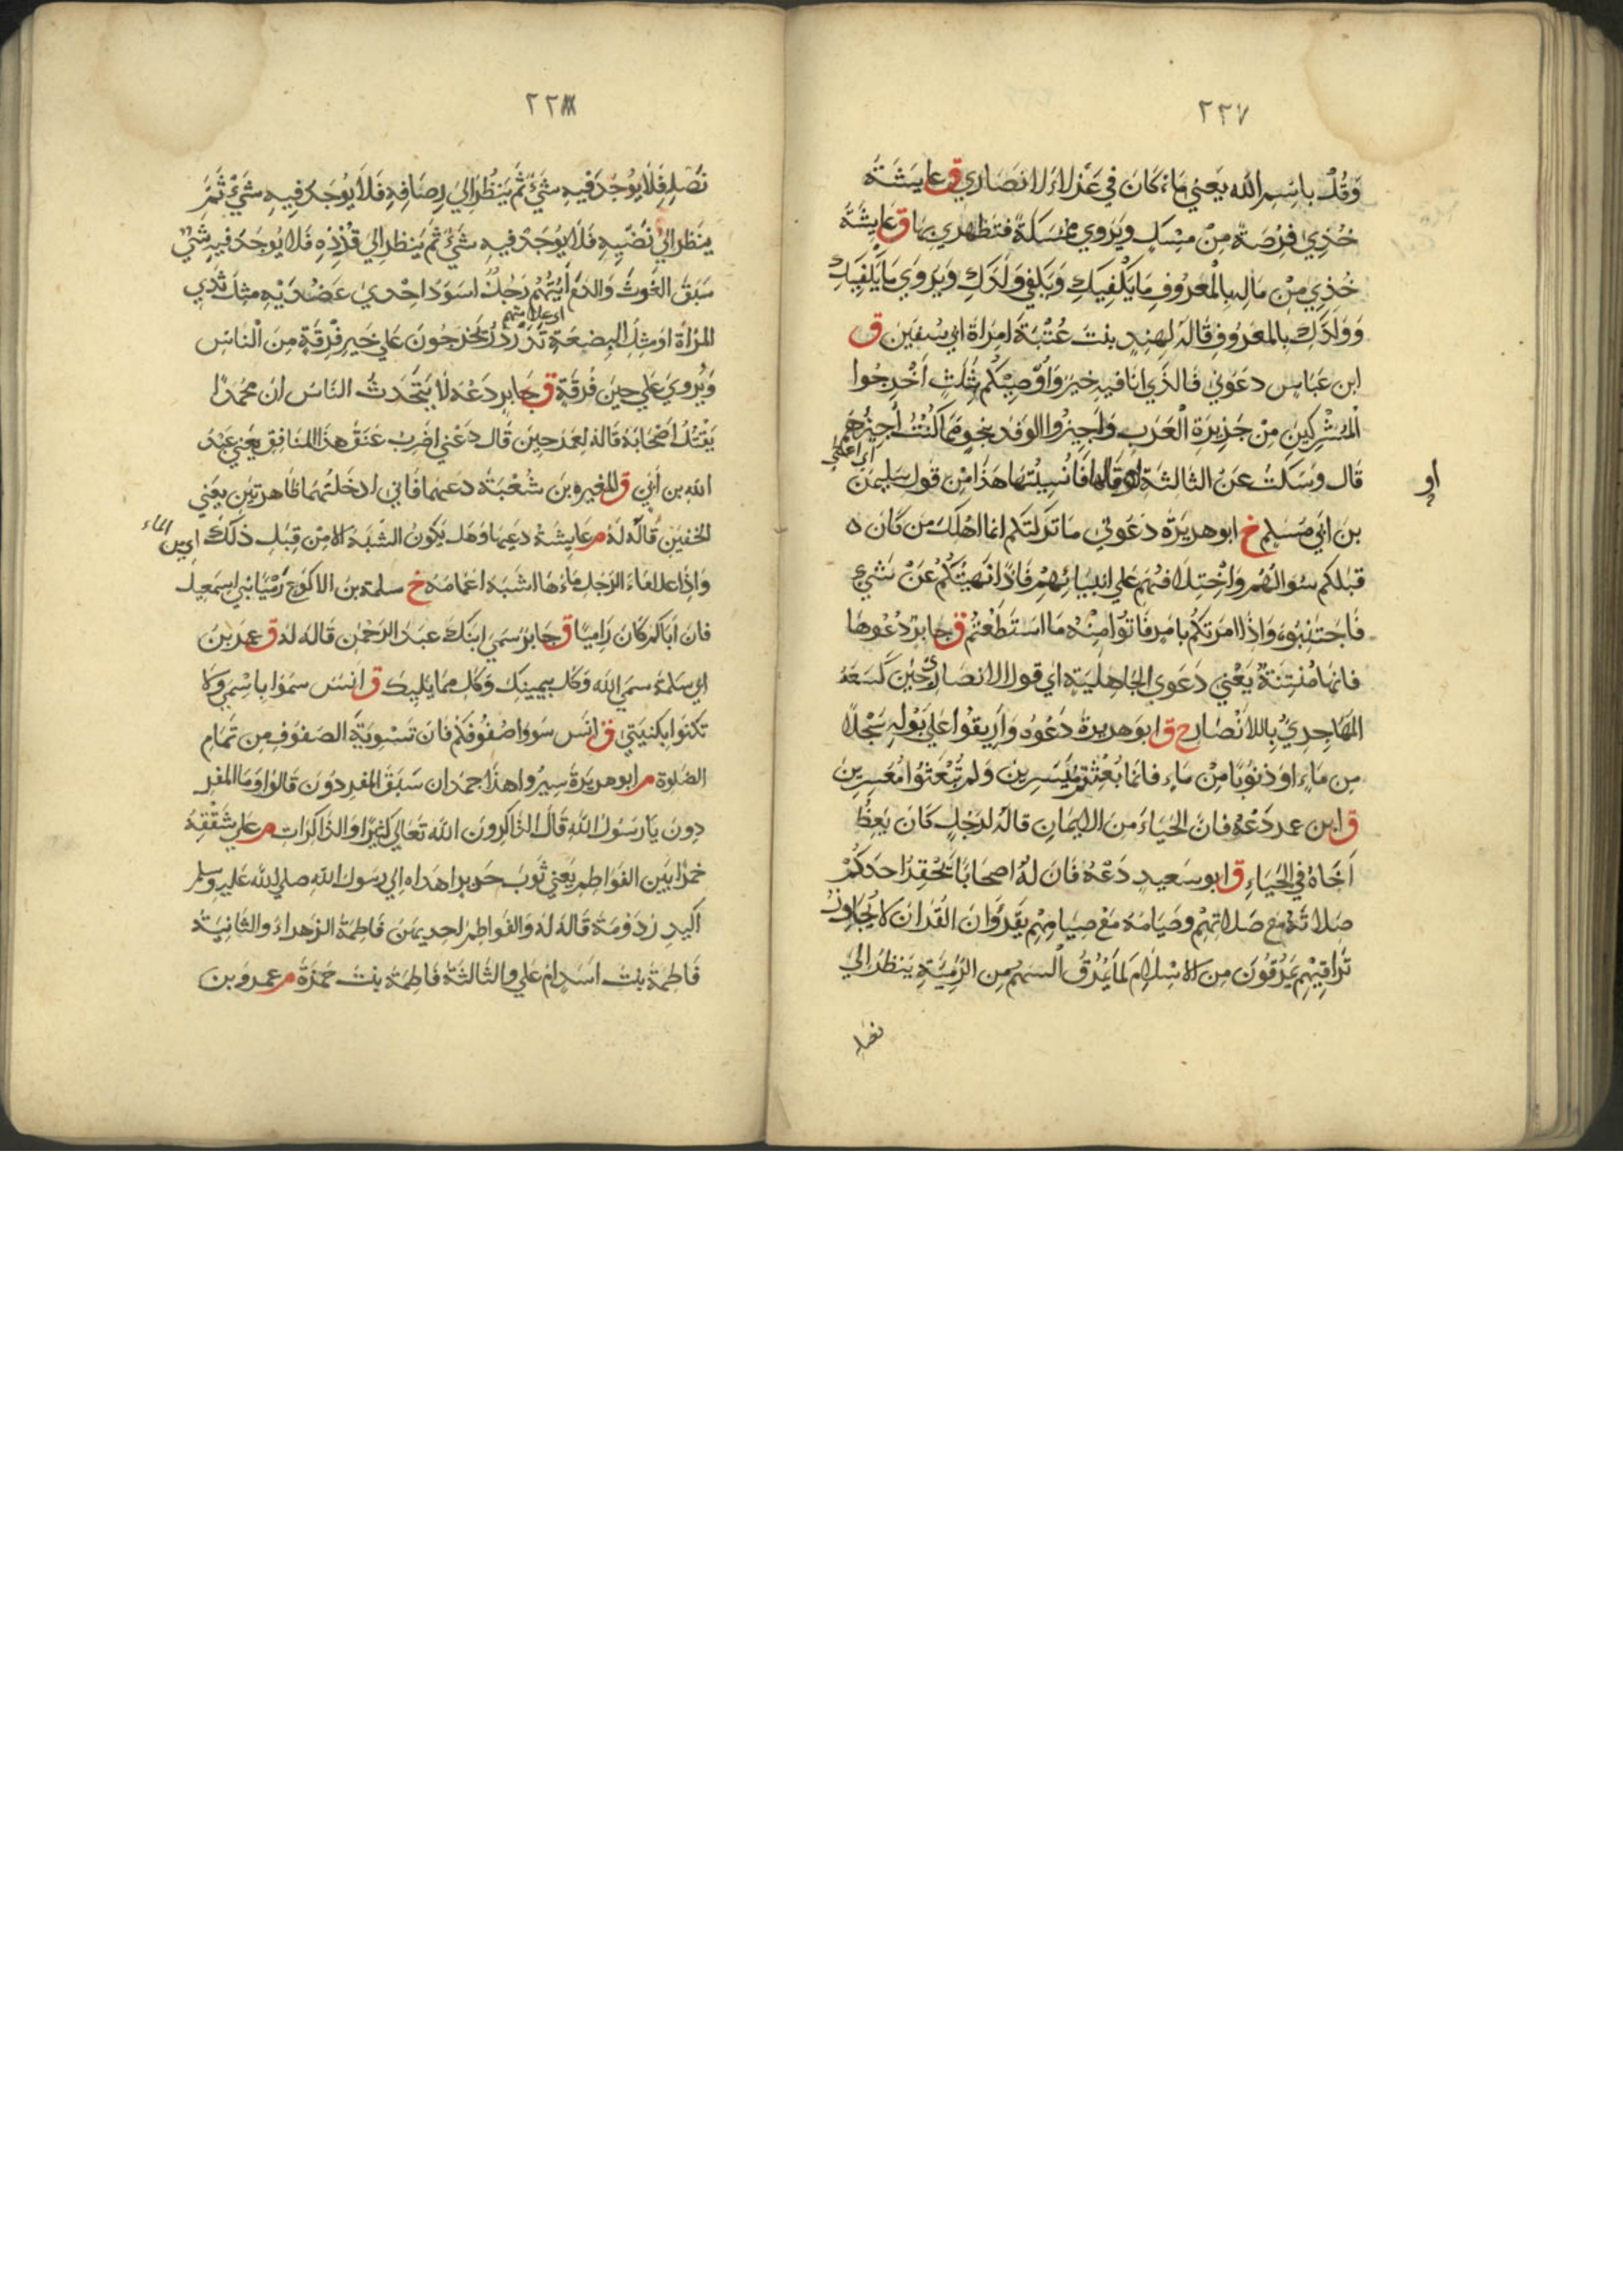 ٢٢٧
وَقُلْ باسْمِ الله يَعني مَاءً كَانَ في عَزْلَاءِ لانصَاري ق عايشَة
خُذِي فِرْصَةً مِنْ مِسْكٍ وَيُروي مُمَسَّكَةً فتطَهَّري بِهَا ق عايِشَة
خُذِي مِنْ مَالِه بِالْمَعْرُوفِ مَا يَكْفِيكِ وَيَكْفي وَلَدَكِ وَيُرْوَي مَا يَكْفِيكِ
وَوَلَدَكِ بِالمَعْرُوفِ قَالَهُ لِهِنْدٍ بنتَ عُتْبَةَ امرَاة ابي سُفيَن ق
ابن عَبَّاسٍ دعَوُني فالذَّي انَا فيه خَيرٌ وَاُوصِيْكُم بثَلَثٍ اَخْرِجُوا
الْمُشْرِكِينَ مِنْ جَزِيرَةِ الْعَرَبِ وَاَجِيزُوا الوَفدَ بنحوِ مَمَا كُنْتُ اُجِيزُهُم
قَال وسَكَتَ عَنِ الثالثَة قَالها فَانُسِيتُهَا هَذا مِنْ قَول سليمَن
او
بن ابي مسلم خ ابو هريرَة دَعُوني مَا تركتكم انما اهْلكَ من كَان ه
قبلكم سُوالهُم وَاخْتِلَافهُم عَلي انبيَائِهِم فَاِذَا نَهَيتُكُمْ عَنْ شَيْءٍ
فَاجتَنِبُوهُ وَاِذا امرَتكُم بامرٍ فَاتُوا مِنْهُ مَا استَطَعْتُمْ ق جابرٌ دَعُوهَا
فانهَا مُنتِنَةٌ يَعْني دَعَوي الجَاهِلِيَّةِ اي قول الانصَاري حِينَ كَسَعَهُ
المُهَاجِرِيُّ يا للانْصَار خ ق ابو هريرة دَعُوه وَارِيقوُا عَلي بَوْلِهِ سَجْلًا
مِن مَاءٍ اوَ ذنوُبًا مِنْ مَاءٍ فانما بُعِثْتُمْ مُيَسِرِين وَلم تُبْعَثوُا مُعَسِرينَ
ق ابن عمر دَعْهُ فانَ الحَيَاءَ مِنَ الايمَانِ قالَهُ لرَجُلٍ كَانَ يَعِظُ
اَخَاهُ في الحَيَاءِ ق ابو سَعِيدٍ دَعْهُ فَانَ لهُ اصحَابًا يَحْقِرُ احَدكُمْ
صَلاتَهُ مع صَلاتهِمْ وصَيَامَهُ مَعَ صِيَامِهِم يَقرَؤُنَ القُرْانَ لَا يُجَاوِز
تَرَاقِيَهُم يَمْرُقُونَ مِن الاسْلَامِ كمَا يَمْرُقُ السَهمُ مِن الرَّمِيَّةِ يَنظُرُ الي
نصله
٢٢٨
نَصْلِهِ فَلَا يُوْجَدُ فيهِ شَيْءٌ ثُم يَنظُرُ اِلي رِصَافِهِ فَلَا يُوْجَدُ فيهِ شَيْءٌ ثُمَّ
ينظر اليٰ نَضِيِّهِ فَلَا يُوْجَدُ فيهِ شَيْءٌ ثُم يُنظر الي قُذَذِهِ فَلا يُوجَدُ فيهِ شيْءٌ
سَبَقَ الفَرثَ وَالدَّمَ آيَتُهُم رَجُلٌ اسوَدُ احْدي عَضُدَيْهِ مثلُ ثَدي
اي علامتهم
المَرْاةِ اوَ مثِل البضعَةِ تَدَرْدَرُ يَخرجُونَ عَلي خَيرِ فْرِقَةٍ مِنَ الْنَّاسِ
وَيُروي عَلي حِينَ فُرقَةٍ ق جَابِرٍ دَعْهُ لَا يَتحَّدَثُ النّاسُ ان مُحَمَدًا
يَقتُلُ اصْحَابَهُ قالهُ لِعُمَرَ حِينَ قَال دَعْني اضَرِبْ عُنَقَ هذَا المنَافِق يَعني عَبْدَ
اللهِ بن اُبَيّ ق المغيرو بن شُعْبَةُ دعهمَا فاني ادخَلتُهُمَا طَاهرتينِ يَعني
الخفين قَالَهُ لهُ م عَايِشَةُ دَعيهَا وَهَل يَكُونُ الشَّبَهُ الا مِنْ قِبَلِ ذَلكَ اي من الماء
وَاِذا علا مَاءُ الرَجُلِ مَاءهَا اشبَهَ اعمَامَهُ خ سلمة بن الاكوَعِ رَمْيًا بني اسمَعِيلَ
فان اَبَاكم كَانَ رَامِيًا ق جَابِرٌ سَمّي ابنَكَ عَبدَ الرَّحمٰنِ قالهُ لهُ ق عمَر بنَ
ابي سَلمَةَ سَمِّ الله وَكُل بيَمِينِكَ وَكُل مِمَا يَليكَ ق اَنسَ سموَا بِاسْمي وَلا
تكنوَا بكنيَتي ق انس سَووا صُفُوفَكُم فَان تَسْوِيَة الصفوفِ مِن تَمَامِ
الصَّلوة م ابو هريرة سِيرُوا هذَا جمدَان سَبَقَ المفرِدُونَ قَالوُا وَمَا المفرِ
دونَ يَا رَسُولَ اللهِ قالَ الذّاكرونَ الله تعَالي كثيرًا والذاكرَات م عَلي شَقِّقهُ
خمرًا بَينَ الفَواطِم يَعني ثوبَ حَريرٍ اهدَاه اِلي رسوَل اللهِ صلي الله عَليه وسلم
اُكيدِر دَوْمَة قاله لهُ وَالفواطِمُ احديهنَ فَاطِمَة الزَهراءُ والثانِيَة
فَاطِمَة بنتَ اسَدٍ امّ عَلي والثالثَة فَاطِمَة بنت حَمزَة م عمرو بن